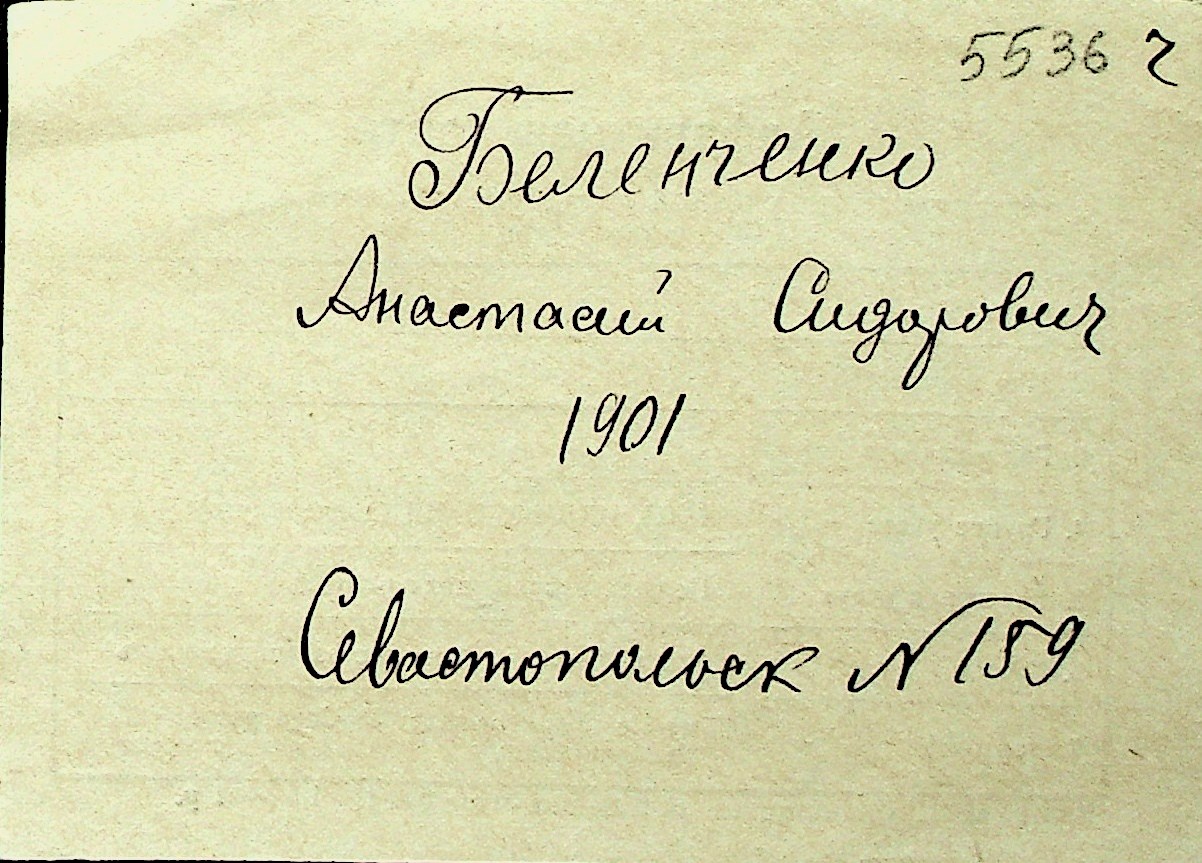 5536 ч
Беленченко
Анастасий Сидорович
1901
Севастопольск №159